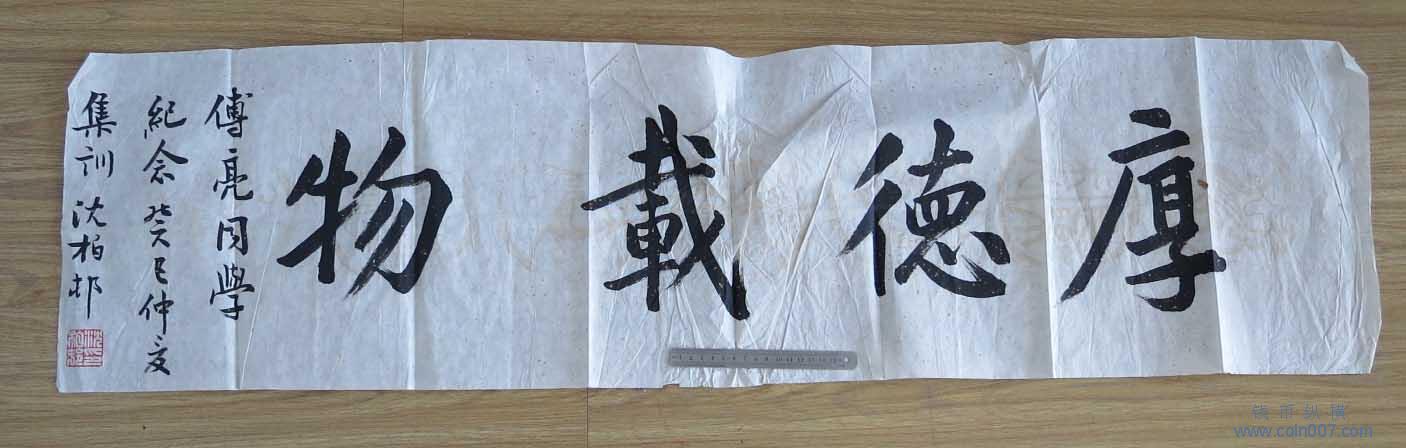 厚德載物
傅亮同學
紀念癸巳仲夏
集訓 沈柏邨
钱币纵横
www.coin007.com